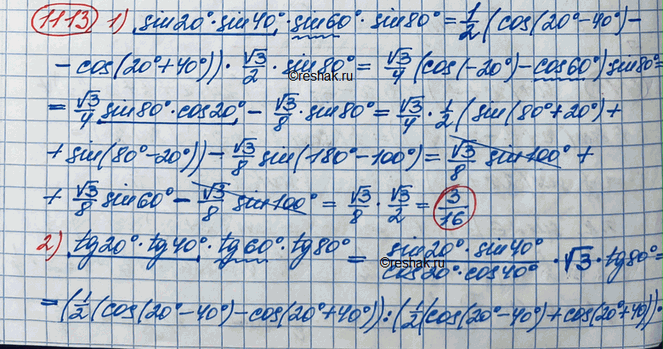 1113 1) sin20°·sin40°·sin60°·sin80° = 1/2 (cos(20°-40°) -
- cos(20°+40°)) · √3/2 · sin80° = √3/4 (cos(-20°) - cos60°) sin80° =
©reshak.ru
= √3/4 sin80°·cos20° - √3/8 · sin80° = √3/4 · 1/2 (sin(80°+20°) +
+ sin(80°-20°)) - √3/8 sin(180°-100°) = √3/8 sin100° +
+ √3/8 sin60° - √3/8 sin100° = √3/8 · √3/2 = 3/16
2) tg20°·tg40°·tg60°·tg80° = sin20°·sin40°/cos20°·cos40° · √3 · tg80° =
©reshak.ru
= (1/2 (cos(20°-40°) - cos(20°+40°)) : (1/2 (cos(20°-40°) + cos(20°+40°)) ·